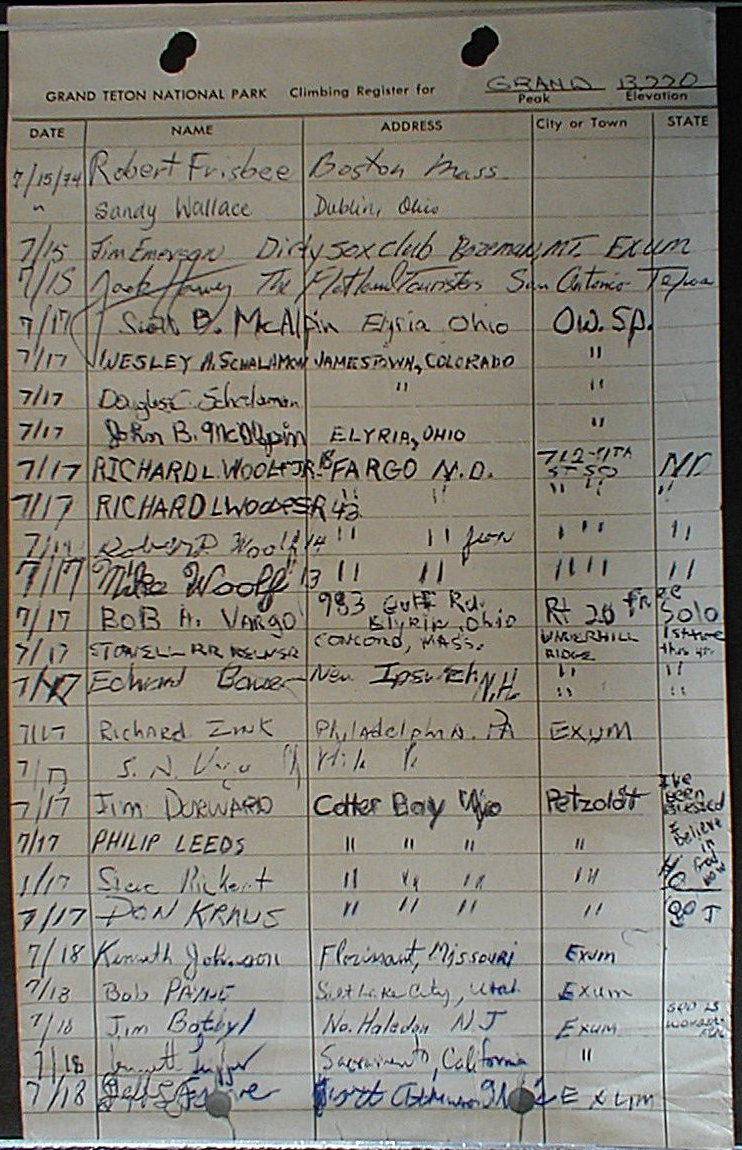 GRAND TETON NATIONAL PARK Climbing Register for GRAND 13770
Peak Elevation
DATE NAME ADDRESS City or Town STATE
7/15/74 Robert Frisbee Boston Mass.
" Sandy Wallace Dublin, Ohio
7/15 Jim Emerson Dirty sox club Bozeman, MT. Exum
7/15 Jack Harvey The Flatland Tourists San Antonio Texas
7/17 Scott B. McAlpin Elyria Ohio OW. SP.
7/17 WESLEY A. SCHALAMON JAMESTOWN, COLORADO "
7/17 Douglas C. Schalamon " "
7/17 John B. McAlpin ELYRIA, OHIO "
7/17 RICHARD L. WOOLF JR. FARGO N.D. 712-7TH ST SO ND
7/17 RICHARD L WOOLF SR 43 " " " " "
7/17 Robert D Woolf 14 " " " " "
7/17 Mike Woolf 13 " " " " "
7/17 BOB A. VARGO 983 Gulf Rd. Elyria, Ohio Rt 20 free Solo
7/17 CONCORD, MASS. UNDERHILL RIDGE 1st time this yr.
7/17 Edward Bauer New Ipswich N.H. " "
" " "
7/17 Richard Zink Philadelphia. PA EXUM
7/17 S. N.
7/17 Jim DORWARD Colter Bay Wyo Petzoldt I've been Blessed
7/17 PHILIP LEEDS " " " " I believe in God now
1/17 Steve Rickert " " " "
7/17 DON KRAUS " " " "
7/18 Kenneth Johnson Florissant, Missouri Exum
7/18 Bob PAYNE Salt Lake City, Utah Exum
7/18 Jim Botbyl No. Haledon NJ Exum GOD IS WONDERFUL
7/18 Sacramento, California "
7/18 Exum